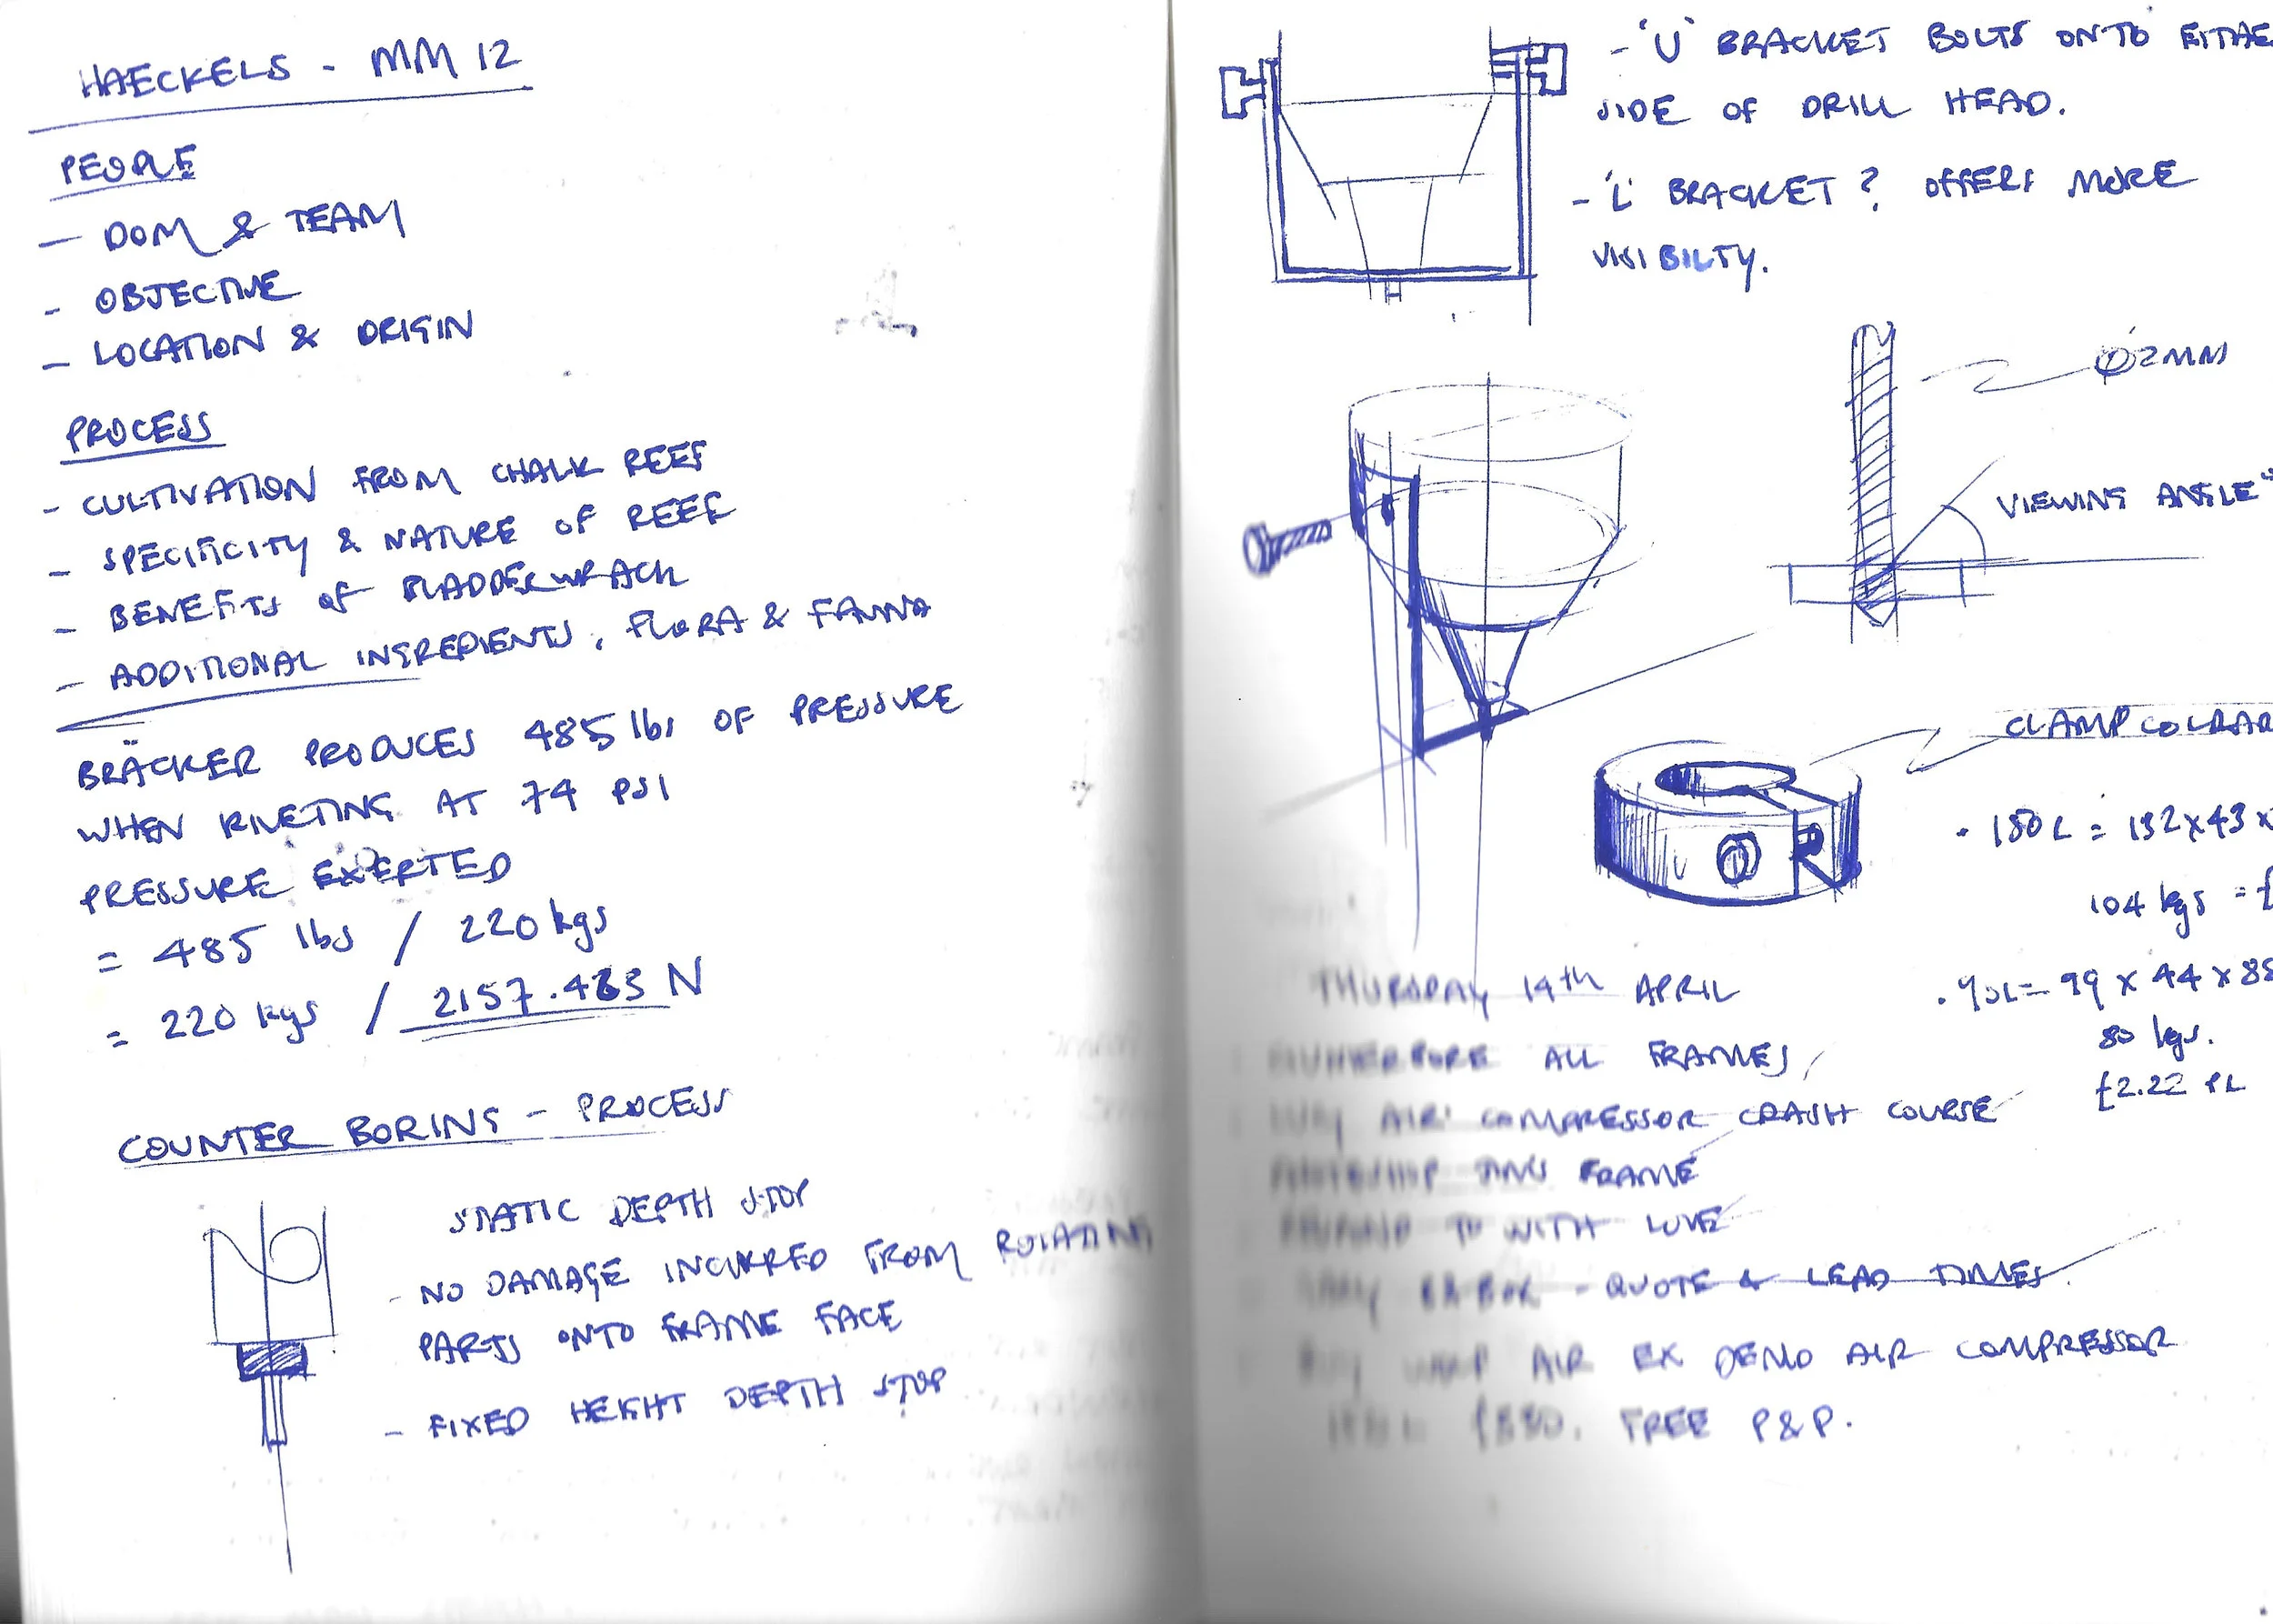 HAECKELS - MM 12
PEOPLE
- DOM & TEAM
- OBJECTIVE
- LOCATION & ORIGIN
PROCESS
- CULTIVATION FROM CHALK REEF
- SPECIFICITY & NATURE OF REEF
- BENEFITS OF BLADDERWRACK
- ADDITIONAL INGREDIENTS, FLORA & FAUNA
BRÄCKER PRODUCES 485 lbs OF PRESSURE
WHEN RIVETING AT 74 PSI
PRESSURE EXERTED
= 485 lbs / 220 kgs
= 220 kgs / 2157.463 N
COUNTER BORING - PROCESS
STATIC DEPTH STOP
- NO DAMAGE INCURRED FROM ROTATING
PARTS ONTO FRAME FACE
- FIXED HEIGHT DEPTH STOP
- 'U' BRACKET BOLTS ONTO EITHE
SIDE OF DRILL HEAD.
- 'L' BRACKET? OFFERS MORE
VISIBILTY.
Ø2MM
VIEWING ANGLE
CLAMP COLLAR
- 150L = 132 x 43 x
104 kgs = £
. 90L = 99 x 44 x 88
80 kgs.
£2.22 PL
THURSDAY 14th APRIL
COUNTERBORE ALL FRAMES
AIR COMPRESSOR CRASH COURSE
PHOTOSHOP FRAME
RESPOND TO WITH LOVE
- QUOTE & LEAD TIMES.
BUY AIR EX DEMO AIR COMPRESSOR
FREE P&P.